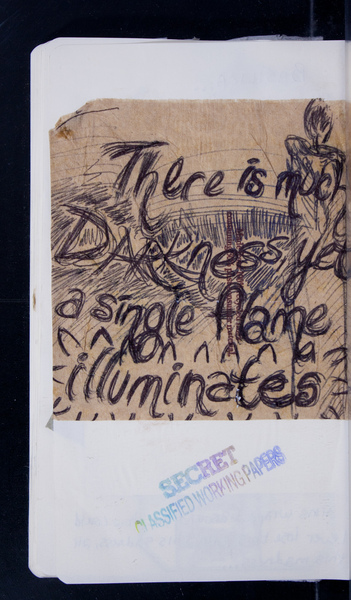 There is much
DARKNess yet
a single flame
illuminates
SECRET
CLASSIFIED WORKING PAPERS